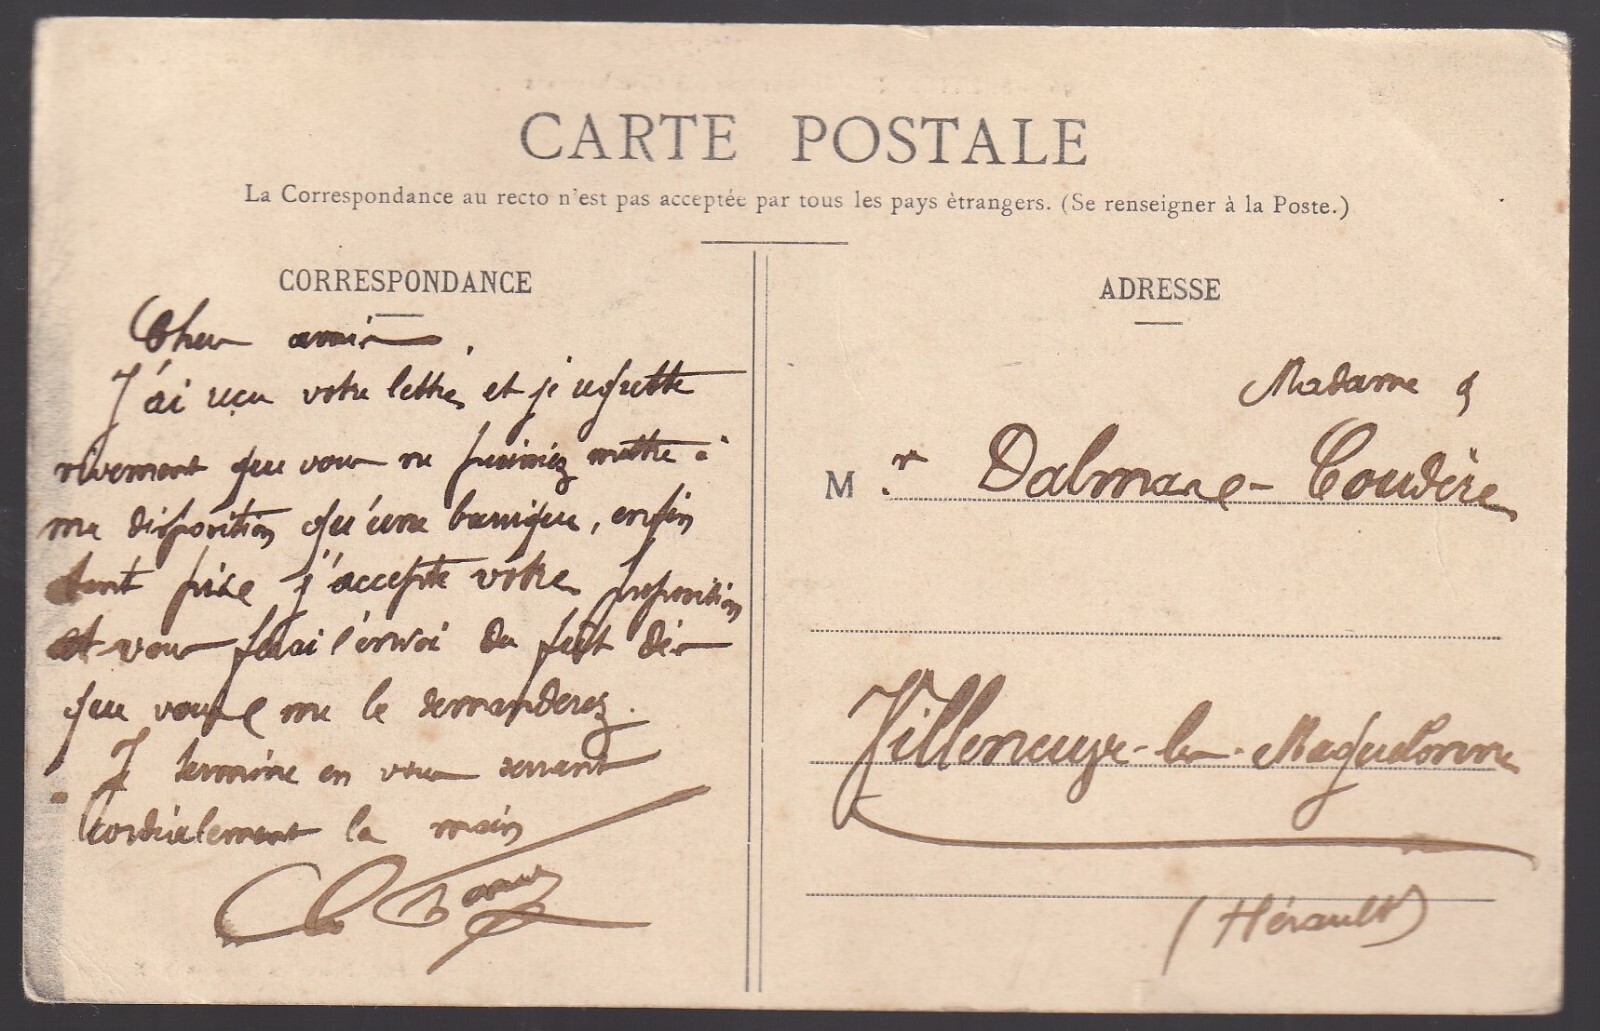 CARTE POSTALE
La Correspondance au recto n'est pas acceptée par tous les pays ètrangers. (Se renseigner à la Poste.)
CORRESPONDANCE
Cher ami,
J'ai reçu votre lettre et je regrette
vivement que vous ne puissiez mettre à
ma disposition qu'une barrique, enfin
tant pire j'accepte votre proposition
et vous ferai l'envoi du fût dès
que vous me le demanderez.
Je termine en vous serrant
cordialement la main
ADRESSE
Madame &
M r Dalmare-Coudère
Villeneuve-les-Maguelonne
(Hérault)